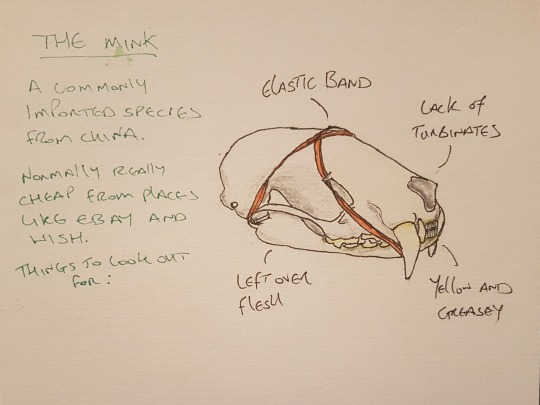 THE MINK
A COMMONLY
IMPORTED SPECIES
FROM CHINA.
NORMALLY REALLY
CHEAP FROM PLACES
LIKE EBAY AND
WISH.
THINGS TO LOOK OUT
FOR:
ELASTIC BAND
LACK OF
TURBINATES
LEFT OVER
FLESH
YELLOW AND
GREASEY